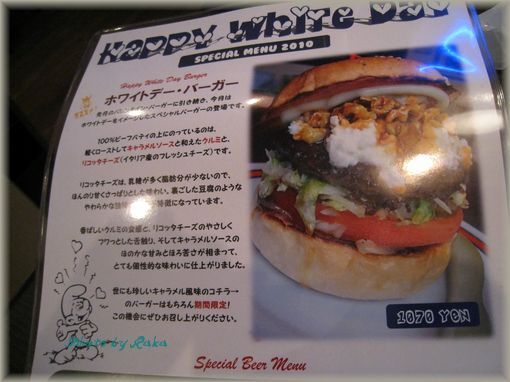 Happy White Day
SPECIAL MENU 2010
Happy White Day Burger
ホワイトデー・バーガー
先月のバレンタイン・バーガーに引き続き、今月は
ホワイトデーをイメージしたスペシャルバーガーの登場です。
100%ビーフパティの上にのっているのは、
軽くローストしてキャラメルソースと和えたクルミと、
リコッタチーズ(イタリア産のフレッシュチーズ)です。
リコッタチーズは、乳糖が多く脂肪分が少ないので、
ほんのり甘くさっぱりとした味わい。裏ごした豆腐のような
やわらかな
特徴になっています。
香ばしいクルミの食感と、リコッタチーズのやさしく
フワっとした舌触り、そしてキャラメルソースの
ほのかな甘みとほろ苦さが相まって、
とても個性的な味わいに仕上がりました。
世にも珍しいキャラメル風味のコチラ→
のバーガーはもちろん期間限定!
この機会にぜひお召し上がりください。
1070 YEN
Photo by Raka
Special Beer Menu